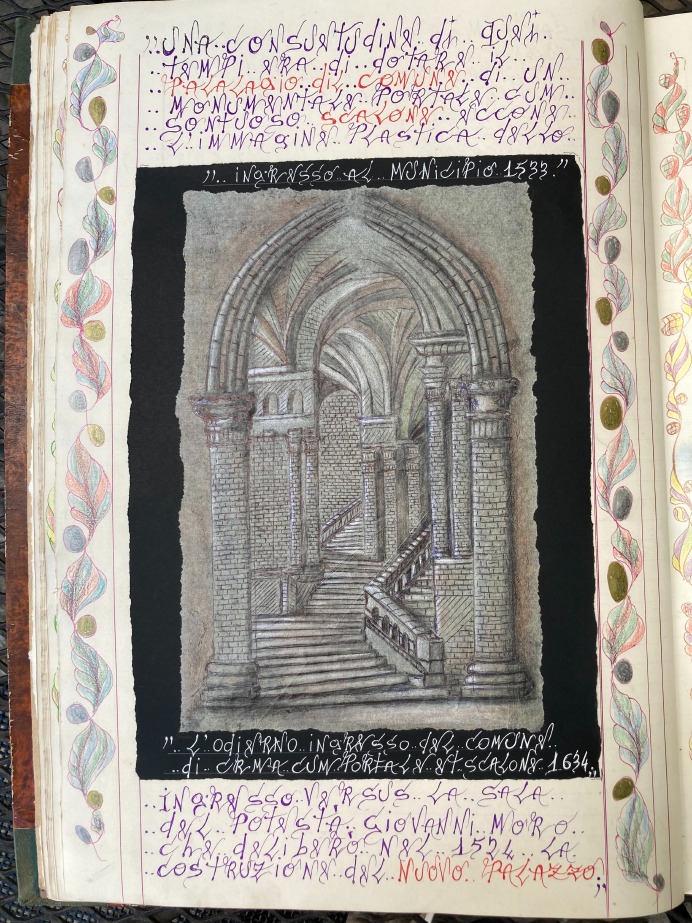 „UNA CONSUETUDINE di QUEi
TEMPi ERA di dOTARE iL
PALAGIO dEL COMUNE di UN
MONUMENTALE PORTALE CUM
SONTUOSO SCALONE ECCONE
L'IMMAGINE PLASTICA dELLO
„.. iNGRESSO AL MUNiCiPiO 1533."
".. L'OdiERNO iNGRESSO dEL COMUNE
di CREMA CUM PORTALE ET SCALONE 1634„
iNGRESSO VERSUS LA SALA
dEL POTESTA GiOVANNi MORO
ChE dELiBERO NEL 1524 LA
COSTRUZiONE dEL NUOVO PALAZZO„